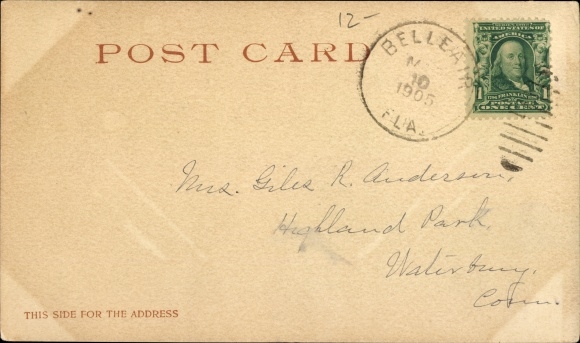 12-
POST CARD
BELLEAIR
M
10
1905
FLA.
SERIES 1902
UNITED STATES OF
AMERICA
1 FRANKLIN 1
POSTAGE
ONE CENT
Mrs. Giles R. Anderson,
Highland Park.
Waterbury.
Conn.
THIS SIDE FOR THE ADDRESS